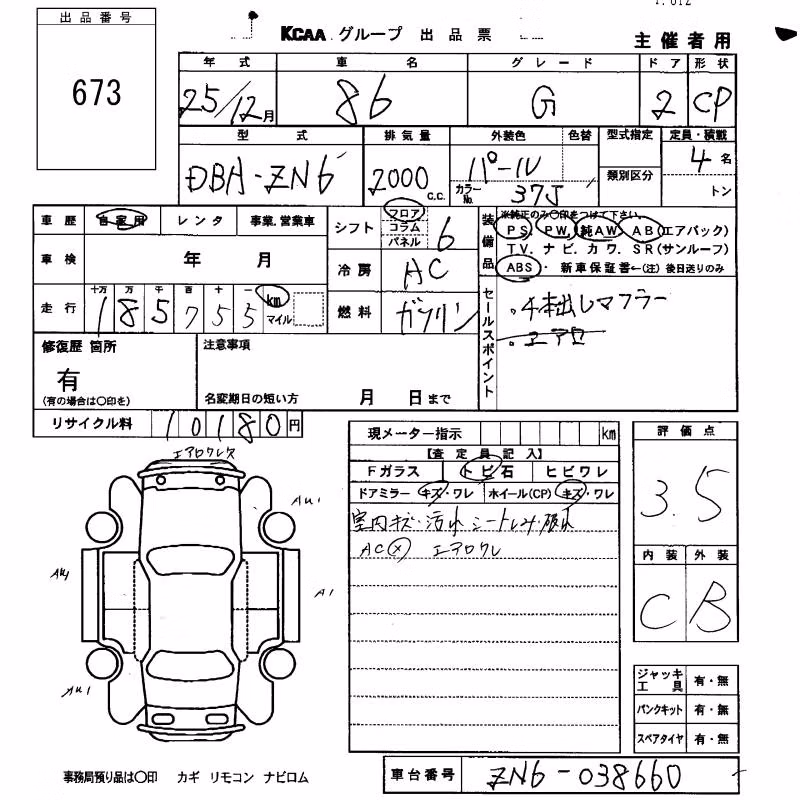 出品番号
673
KCAA グループ 出品票
主催者用
年式 車名 グレード ドア 形状
25/12月 86 G 2 CP
型式 排気量 外装色 色替 型式指定 定員・積載
DBA-ZN6 2000 C.C. パール 4名
カラーNo. 37J 類別区分 トン
車歴 自家用 レンタ 事業.営業車
シフト フロア コラム パネル 6
装備品 ※純正のみ○印をつけて下さい。
PS. PW. 純AW. AB(エアバック)
TV. ナビ. カワ. SR(サンルーフ)
ABS・ 新車保証書←(注)後日送りのみ
車検 年 月
冷房 AC
走行 十万 万 千 百 十 一
185755 km マイル
燃料 ガソリン
セールスポイント
・4本出しマフラー
・エアロ
修復歴 箇所
有
(有の場合は○印を)
注意事項
名変期日の短い方 月 日まで
リサイクル料 10180円
現メーター指示 km
【査定員記入】
Fガラス トビ石 ヒビワレ
ドアミラー キズ・ワレ ホイール(CP) キズ・ワレ
室内キズ・汚れ シートしみ・破れ
AC× エアロワレ
評価点
3.5
内装 外装
C B
エアロワレ
AU1
A1
AU1
ジャッキ工具 有・無
パンクキット 有・無
スペアタイヤ 有・無
事務局預り品は○印 カギ リモコン ナビロム
車台番号 ZN6-038660